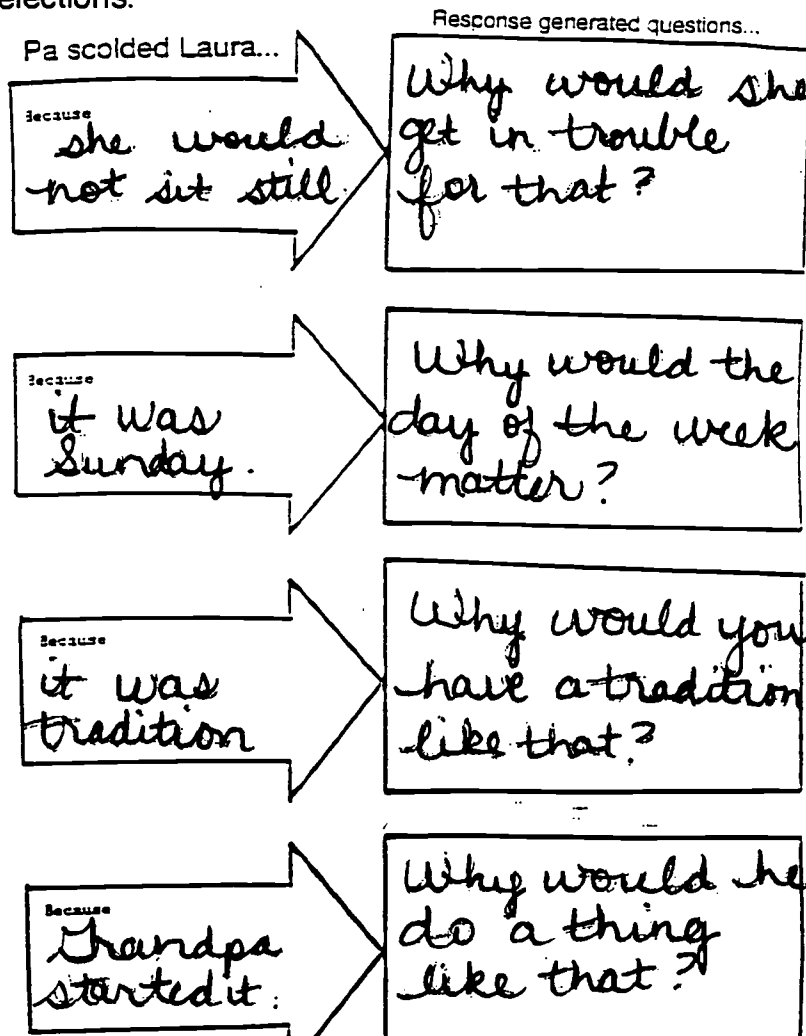 elections.
Response generated questions...
Pa scolded Laura...
Because
she would
not sit still.
Why would she
get in trouble
for that?
Because
it was
Sunday.
Why would the
day of the week
matter?
Because
it was
tradition
Why would you
have a tradition
like that?
Because
Grandpa
started it.
Why would he
do a thing
like that?